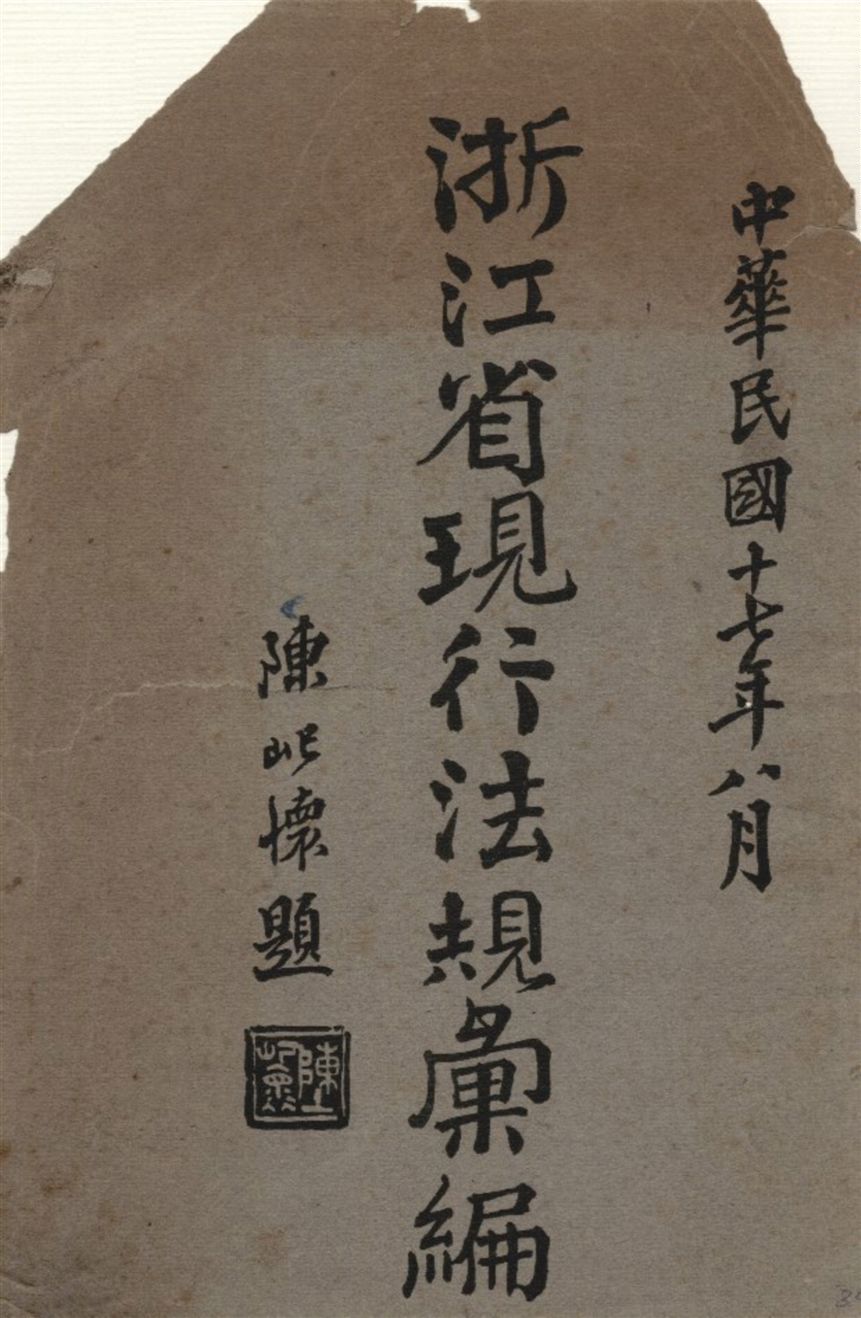 中華民國十七年八月
浙江省現行法規彙編
陳屺懷題